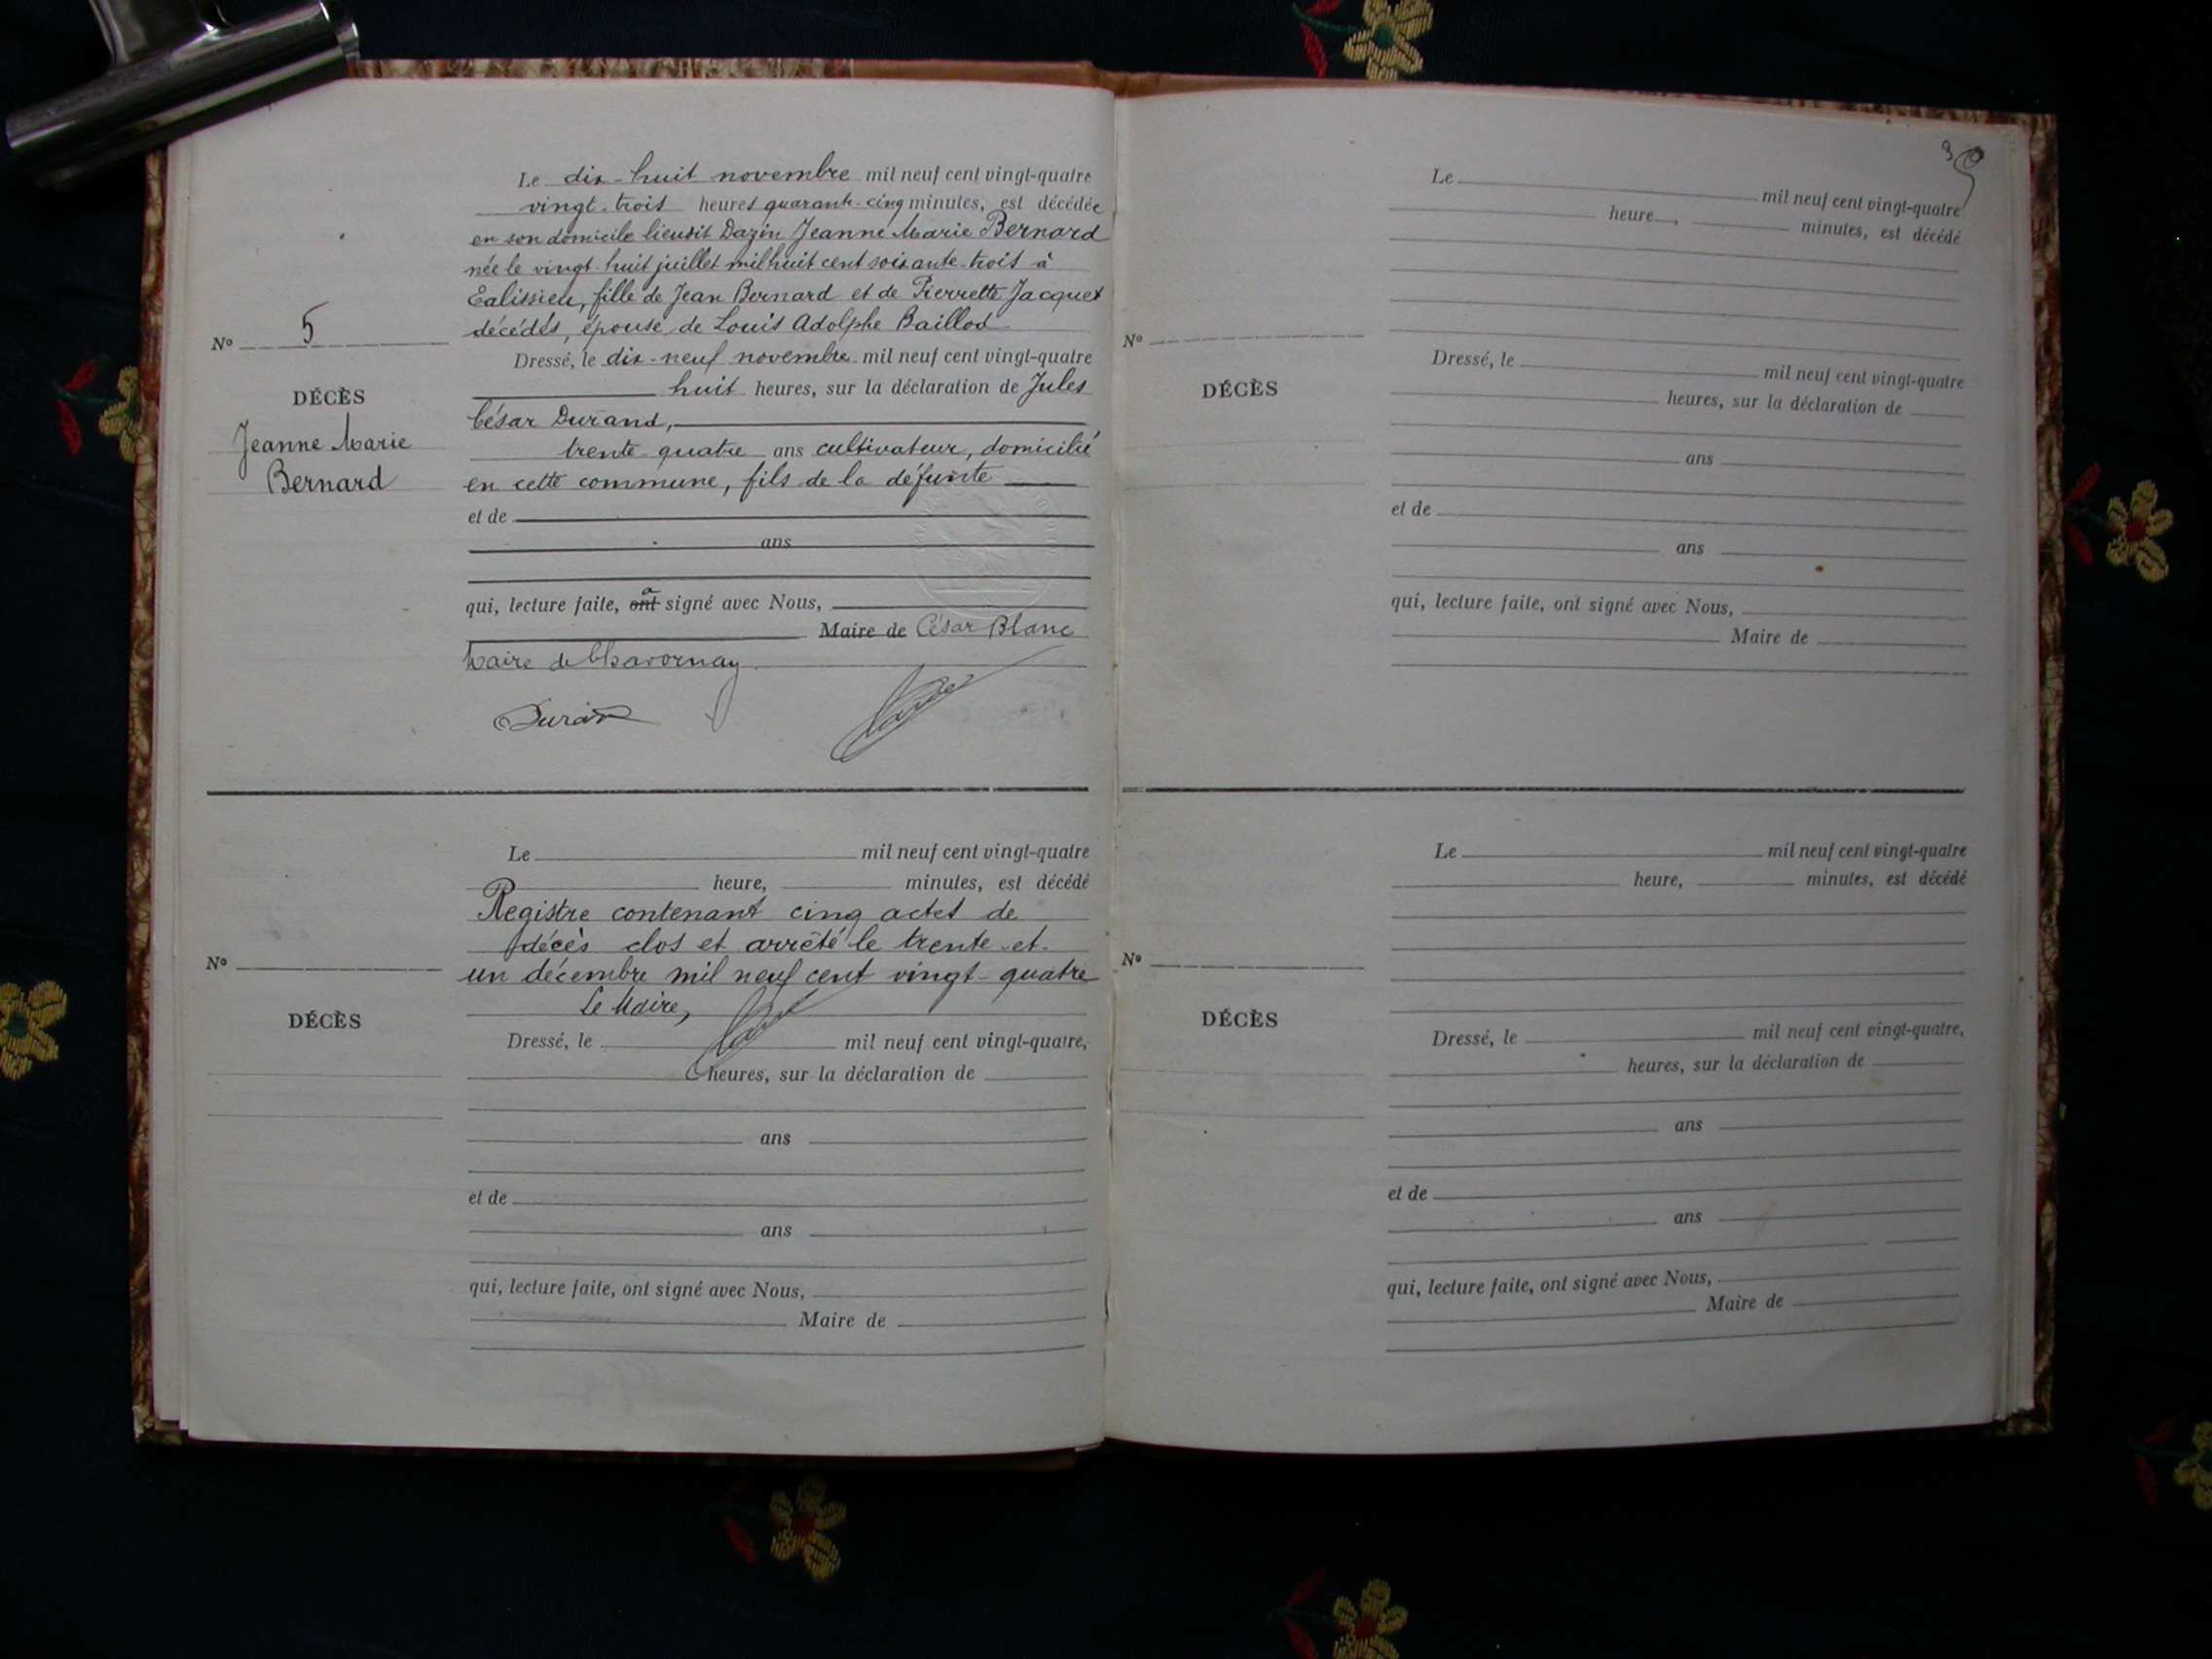 Le dix-huit novembre mil neuf cent vingt-quatre
vingt-trois heures quarante-cinq minutes, est décédée
en son domicile lieudit Dazin Jeanne Marie Bernard
née le vingt-huit juillet mil huit cent soixante-trois à
Talissieu, fille de Jean Bernard et de Pierrette Jacquet
décédés, épouse de Louis Adolphe Baillod
Nº 5
Dressé, le dix-neuf novembre mil neuf cent vingt-quatre
huit heures, sur la déclaration de Jules
DÉCÈS
César Durand,
Jeanne Marie
trente-quatre ans cultivateur, domicilié
Bernard
en cette commune, fils de la défunte
et de
ans
qui, lecture faite, ont a signé avec Nous,
Maire de César Blanc
Maire de Chavornay
Durand
Le mil neuf cent vingt-quatre
heure, minutes, est décédé
Registre contenant cinq actes de
décès clos et arrêté le trente-et-
Nº
un décembre mil neuf cent vingt-quatre
Le Maire,
DÉCÈS
Dressé, le mil neuf cent vingt-quatre,
heures, sur la déclaration de
ans
et de
ans
qui, lecture faite, ont signé avec Nous,
Maire de
Le mil neuf cent vingt-quatre
heure, minutes, est décédé
Nº
Dressé, le mil neuf cent vingt-quatre
DÉCÈS
heures, sur la déclaration de
ans
et de
ans
qui, lecture faite, ont signé avec Nous,
Maire de
Le mil neuf cent vingt-quatre
heure, minutes, est décédé
Nº
DÉCÈS
Dressé, le mil neuf cent vingt-quatre,
heures, sur la déclaration de
ans
et de
ans
qui, lecture faite, ont signé avec Nous,
Maire de